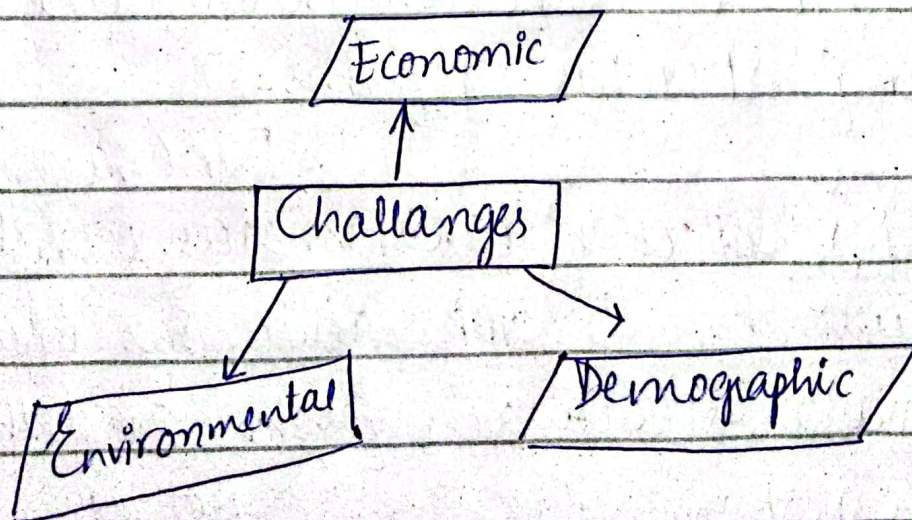 Economic
Challanges
Environmental
Demographic